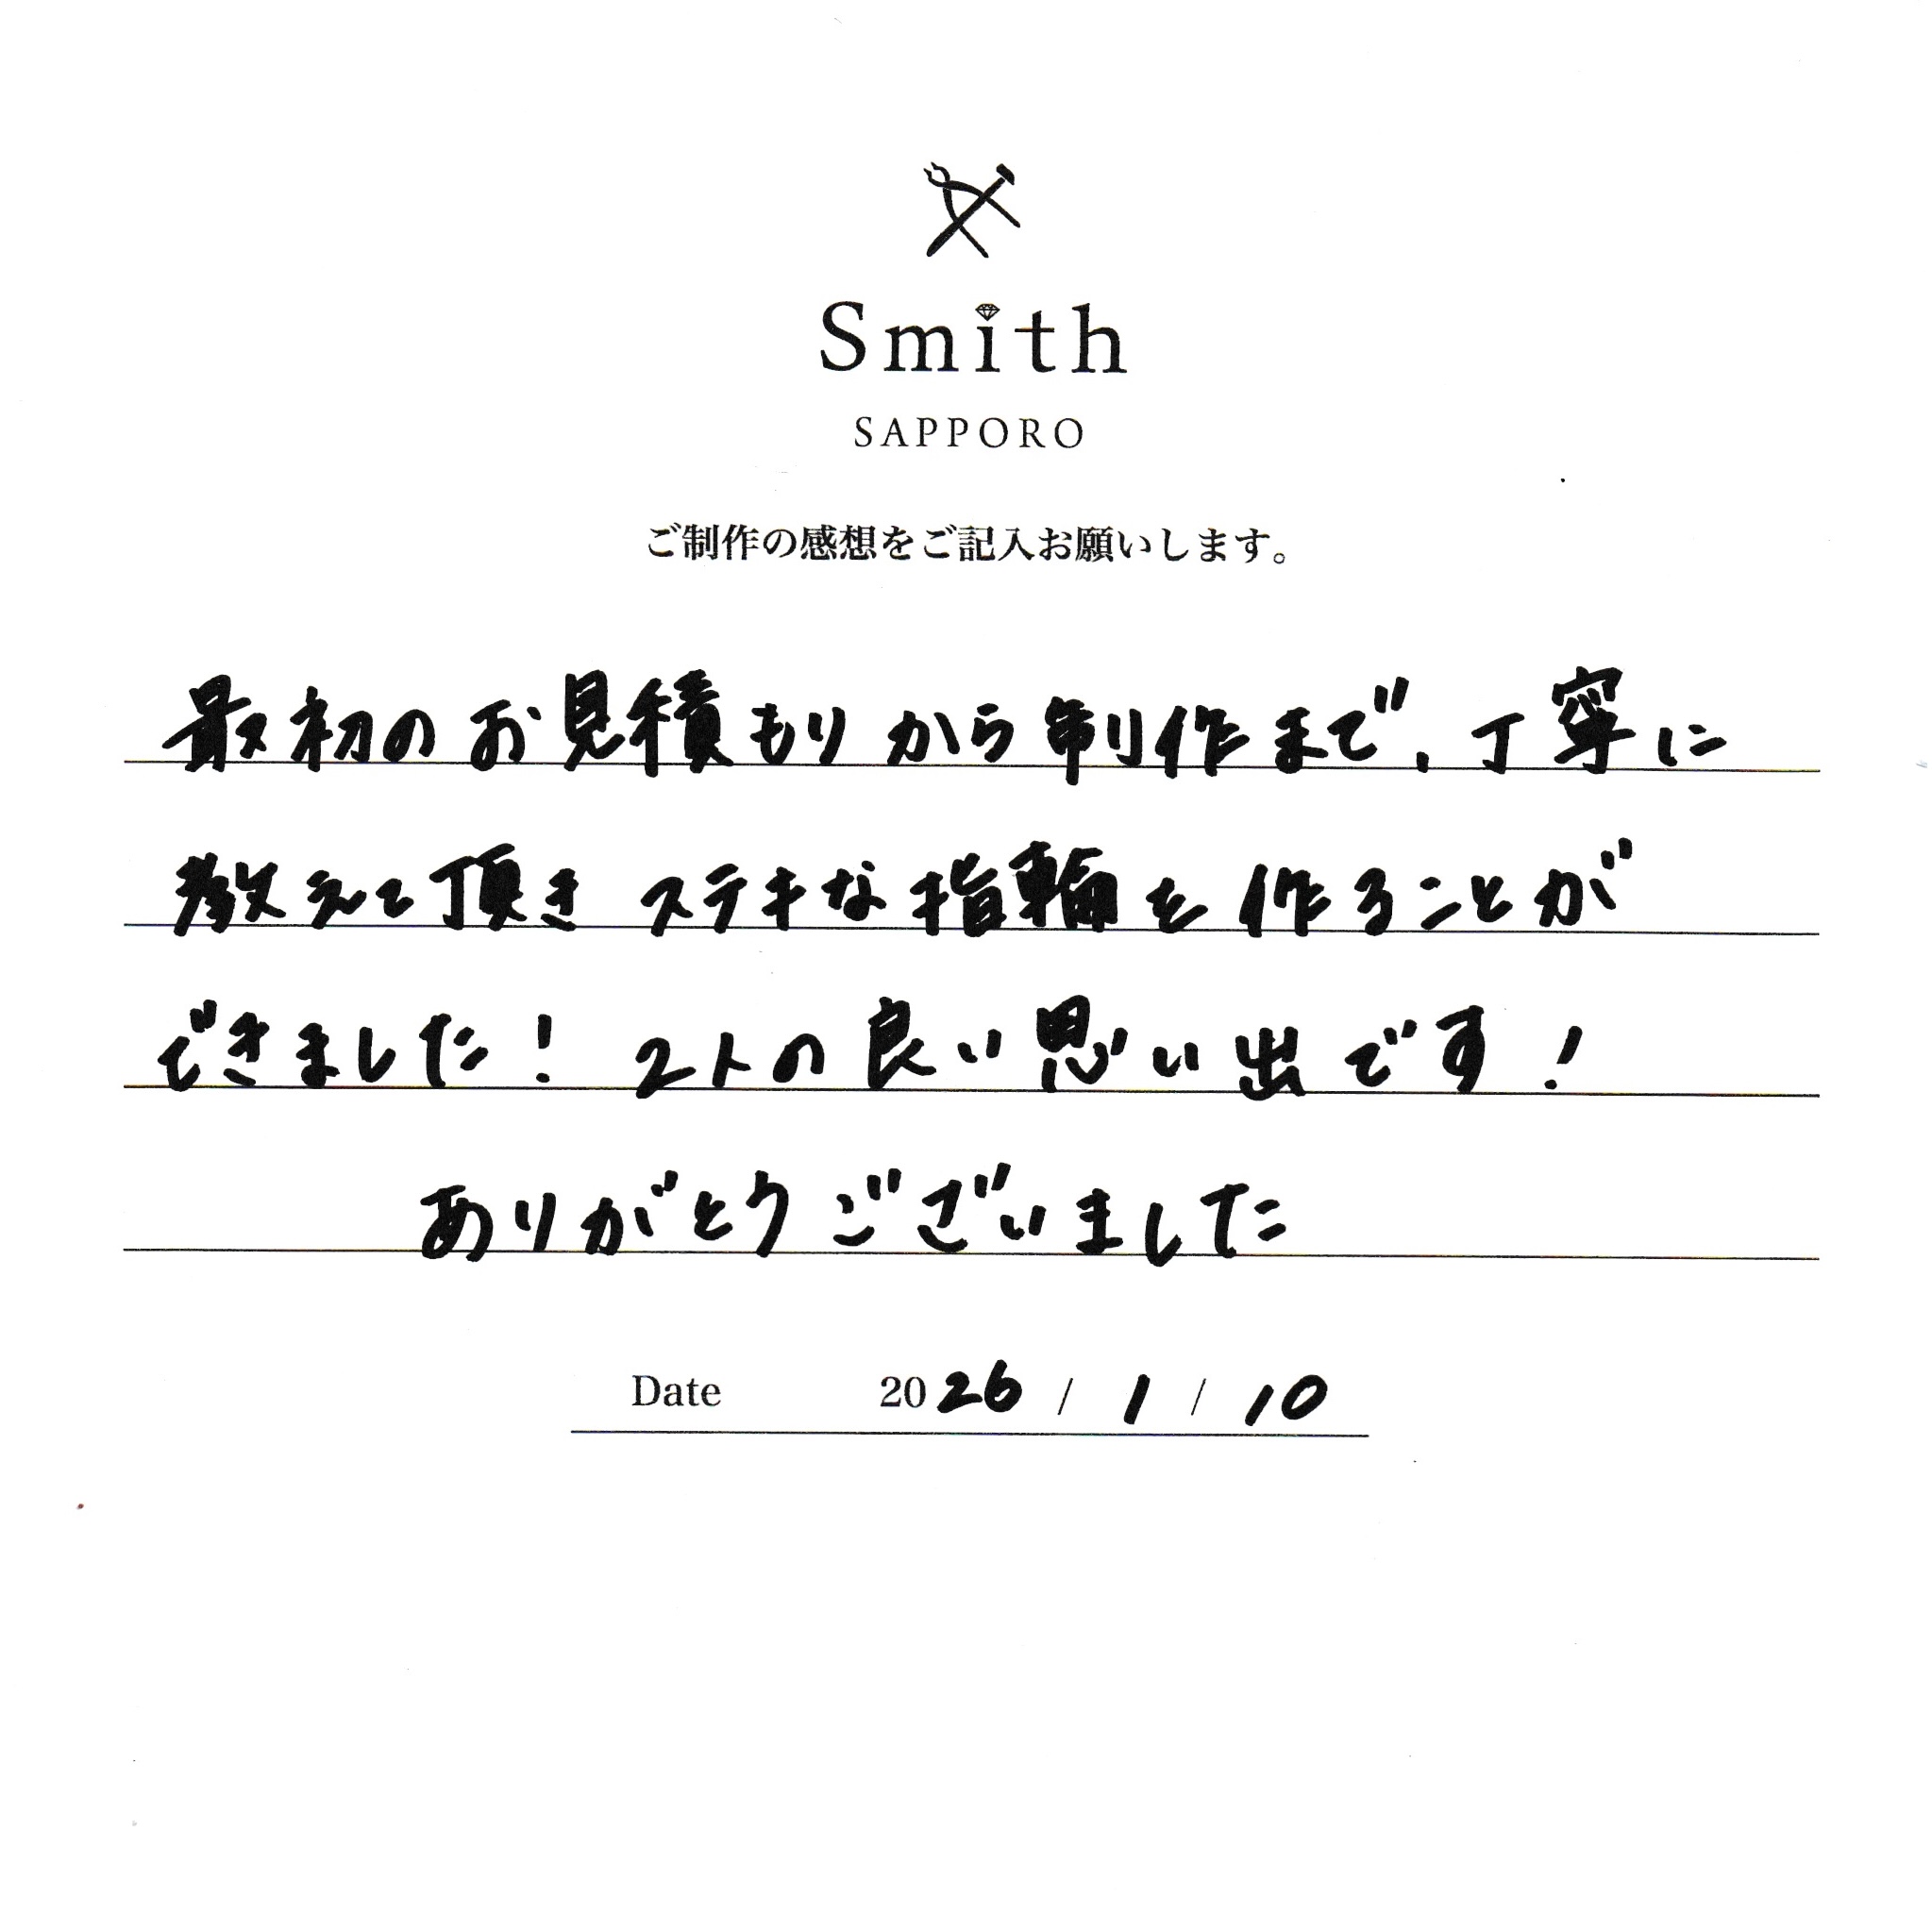 Smith
SAPPORO
ご制作の感想をご記入お願いします。
最初のお見積もりから制作まで、丁寧に
教えて頂きステキな指輪を作ることが
できました！2人の良い思い出です！
ありがとうございました
Date 2026 / 1 / 10